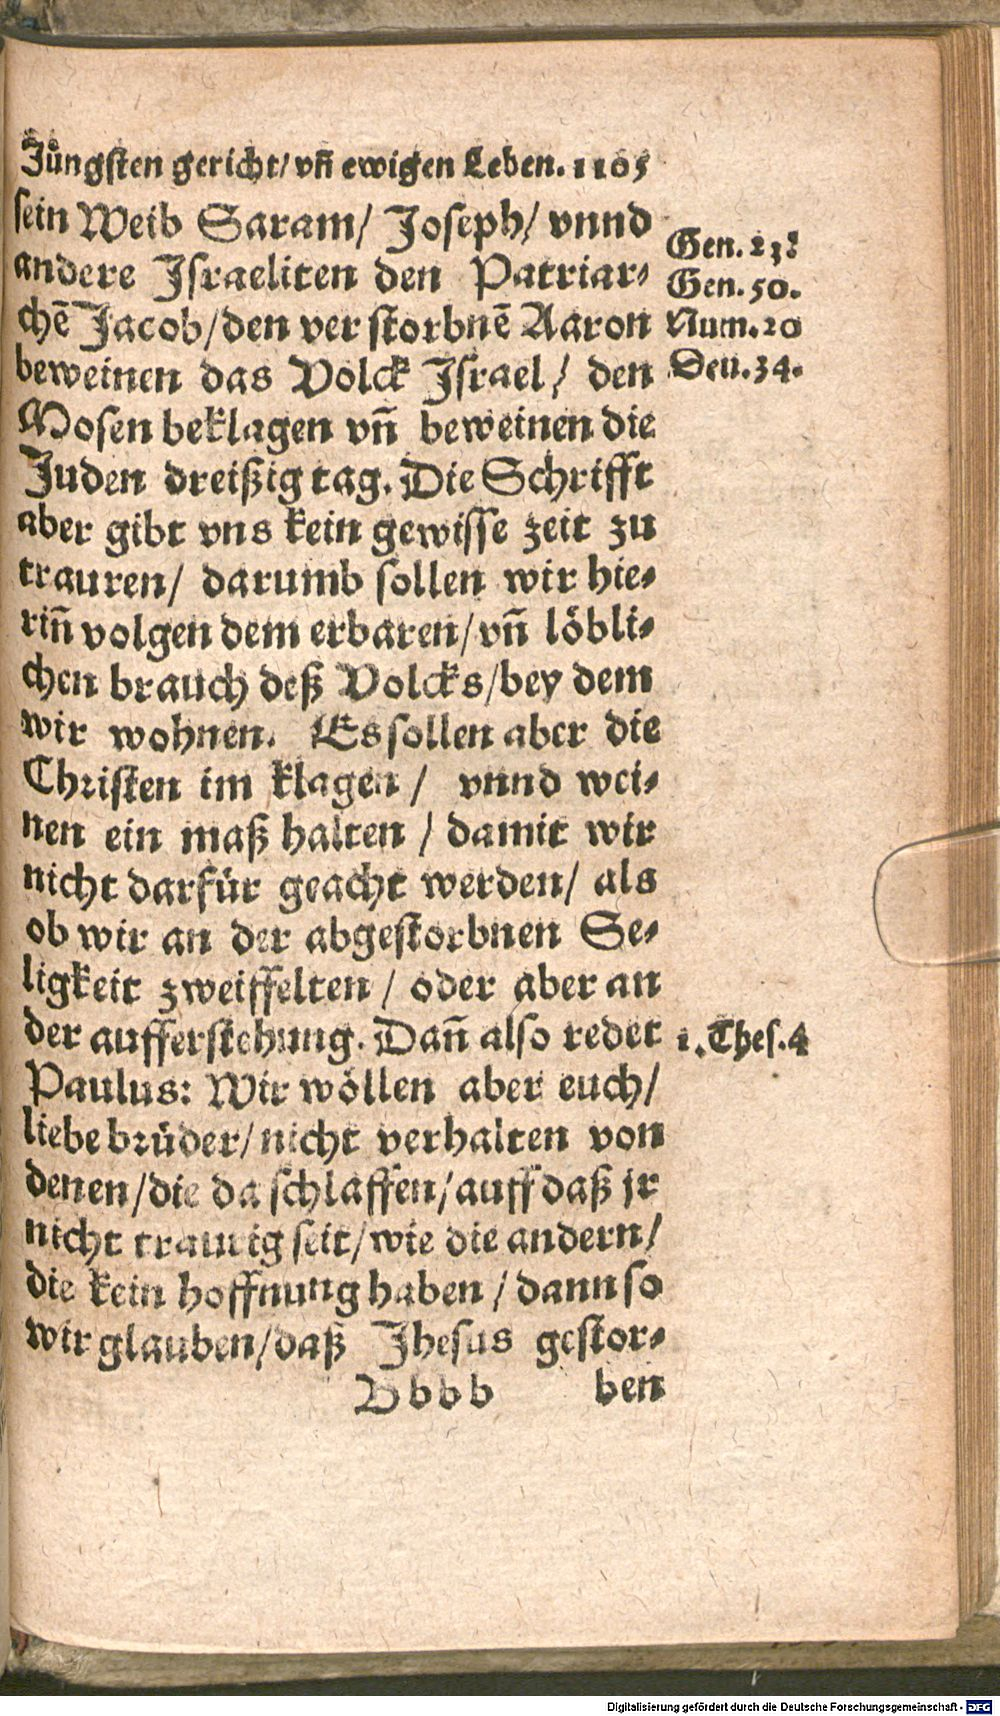 Jüngsten gericht/ vñ ewigen Leben. 1105
sein Weib Saram/ Joseph/ vnnd
andere Israeliten den Patriar-
chē Jacob/den verstorbnē Aaron
beweinen das Volck Israel/ den
Mosen beklagen vñ beweinen die
Juden dreißig tag. Die Schrifft
aber gibt vns kein gewisse zeit zu
trauren/ darumb sollen wir hie-
riñ volgen dem erbaren/vñ löbli-
chen brauch deß Volcks/bey dem
wir wohnen. Es sollen aber die
Christen im klagen/ vnnd wei-
nen ein maß halten/ damit wir
nicht darfür geacht werden/ als
ob wir an der abgestorbnen Se-
ligkeit zweiffelten/ oder aber an
der aufferstehung. Dañ also redet
Paulus: Wir wöllen aber euch/
liebe brüder/nicht verhalten von
denen/die da schlaffen/auff daß jr
nicht traurig seit/wie die andern/
die kein hoffnung haben/ dann so
wir glauben/daß Jhesus gestor-
Bbbb ben
Gen. 23.
Gen. 50.
Num. 20
Deu. 34.
1. Thes. 4
Digitalisierung gefördert durch die Deutsche Forschungsgemeinschaft - DFG